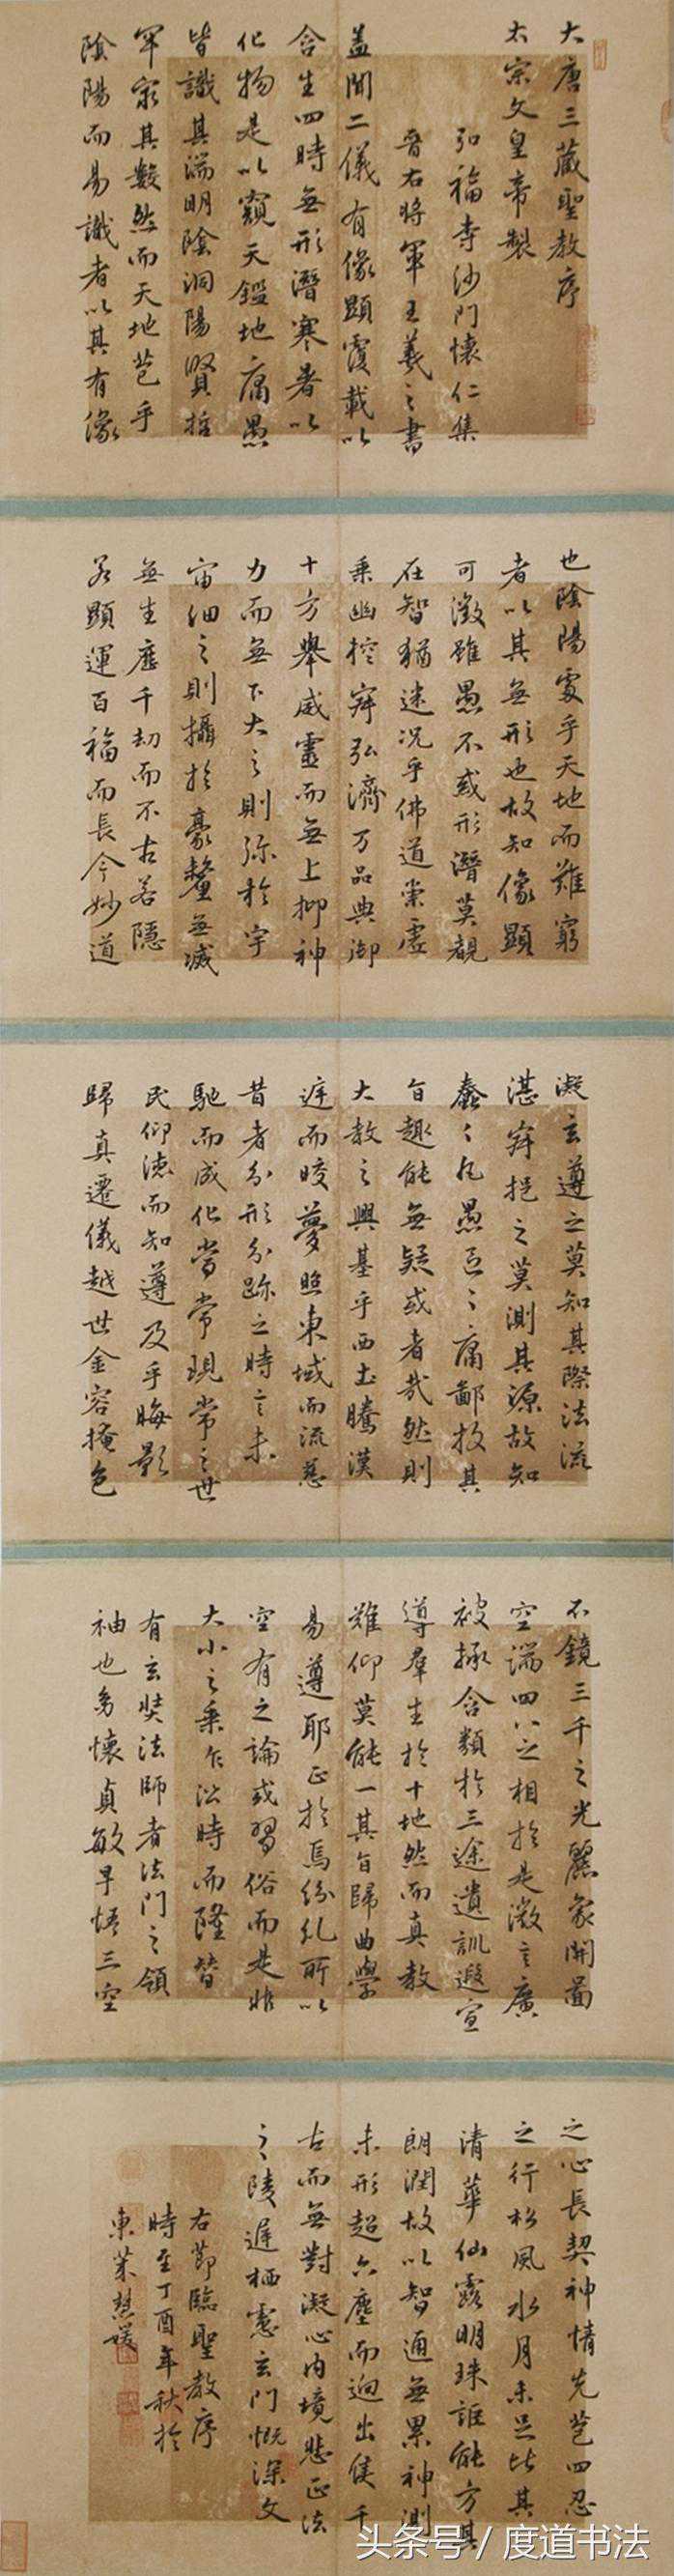 大唐三藏聖教序
太宗文皇帝製
弘福寺沙門懷仁集
晉右將軍王羲之書
蓋聞二儀有像顯覆載以
含生四時無形潛寒暑以
化物是以窺天鑑地庸愚
皆識其端明陰洞陽賢哲
罕窮其數然而天地苞乎
陰陽而易識者以其有像
也陰陽處乎天地而難窮
者以其無形也故知像顯
可徵雖愚不惑形潛莫覩
在智猶迷況乎佛道崇虛
乘幽控寂弘濟万品典御
十方舉威靈而無上抑神
力而無下大之則弥於宇
宙細之則攝於豪釐無滅
無生歷千劫而不古若隱
若顯運百福而長今妙道
凝玄遵之莫知其際法流
湛寂挹之莫測其源故知
蠢〻凡愚區〻庸鄙投其
旨趣能無疑或者哉然則
大教之興基乎西土騰漢
庭而晈夢照東域而流慈
昔者分形分跡之時言未
馳而成化當常現常之世
民仰德而知遵及乎晦影
歸真遷儀越世金容掩色
不鏡三千之光麗象開圖
空端四八之相於是微言廣
被拯含類於三途遺訓遐宣
導群生於十地然而真教
難仰莫能一其旨歸曲學
易遵耶正於焉紛糺所以
空有之論或習俗而是非
大小之乘乍沿時而隆替
有玄奘法師者法門之領
袖也幼懷貞敏早悟三空
之心長契神情先苞四忍
之行松風水月未足比其
清華仙露明珠詎能方其
朗潤故以智通無累神測
未形超六塵而迥出隻千
古而無對凝心內境悲正法
之陵遲栖慮玄門慨深文
右節臨聖教序
時至丁酉年秋於
東萊慧媛
头条号 / 度道书法